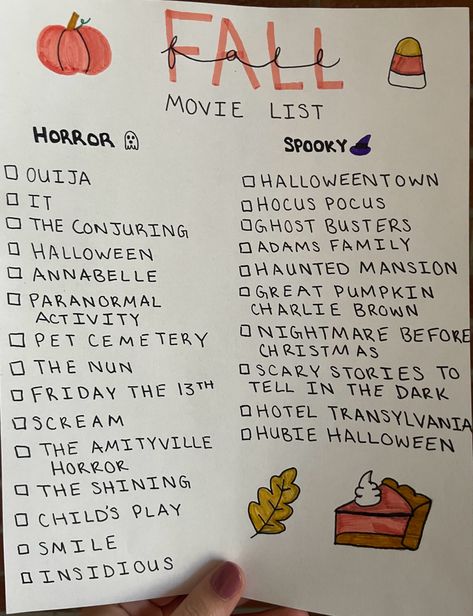 FALL
fall
MOVIE LIST
HORROR
OUIJA
IT
THE CONJURING
HALLOWEEN
ANNABELLE
PARANORMAL
ACTIVITY
PET CEMETERY
THE NUN
FRIDAY THE 13TH
SCREAM
THE AMITYVILLE
HORROR
THE SHINING
CHILD'S PLAY
SMILE
INSIDIOUS
SPOOKY
HALLOWEENTOWN
HOCUS POCUS
GHOST BUSTERS
ADAMS FAMILY
HAUNTED MANSION
GREAT PUMPKIN
CHARLIE BROWN
NIGHTMARE BEFORE
CHRISTMAS
SCARY STORIES TO
TELL IN THE DARK
HOTEL TRANSYLVANIA
HUBIE HALLOWEEN